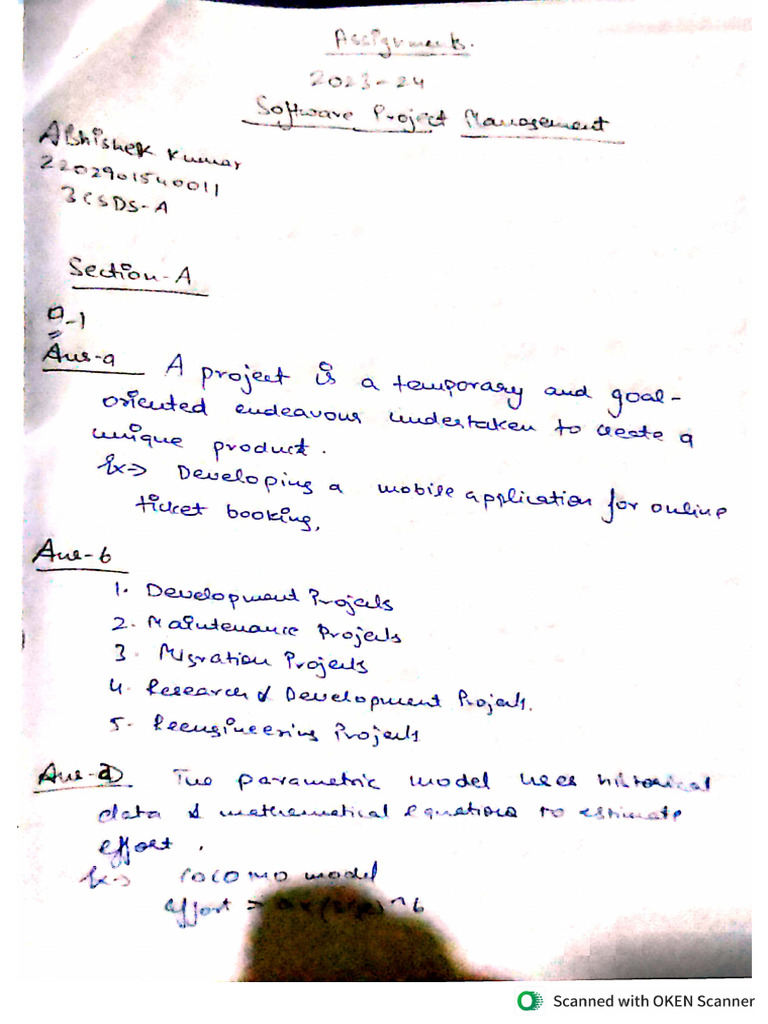 Assignments.
2023-24
Software Project Management
Abhishek Kumar
2202901540011
3CSDS-A
Section-A
Q-1
Ans-a A project is a temporary and goal-
oriented endeavour undertaken to create a
unique product.
Ex-> Developing a mobile application for online
ticket booking,
Ans-b
1. Development Projects
2. Maintenance Projects
3. Migration Projects
4. Research & Development Projects.
5. Reengineering Projects
Ans-d The parametric model uses historical
data & mathematical equations to estimate
effort.
Ex-> COCOMO model
effort = ^b
Scanned with OKEN Scanner